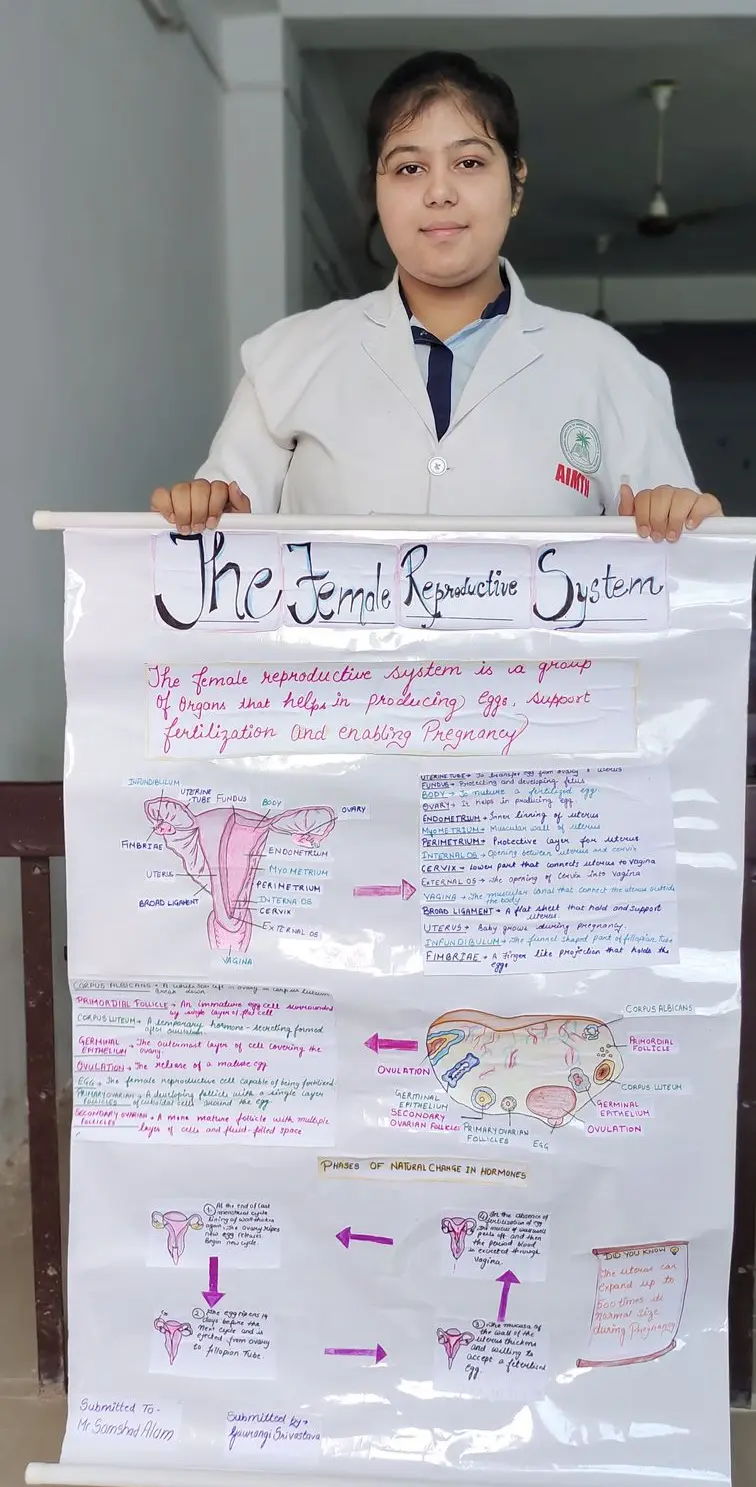 AIMTH
The Female Reproductive System
The female reproductive system is a group
of organs that helps in producing eggs, support
fertilization and enabling Pregnancy
INFUNDIBULUM
UTERINE
TUBE
FUNDUS
BODY
OVARY
FIMBRIAE
UTERUS
BROAD LIGAMENT
ENDOMETRIUM
MYOMETRIUM
PERIMETRIUM
INTERNA OS
CERVIX
EXTERNAL OS
VAGINA
UTERINE TUBE → To transfer egg from ovary
FUNDUS → Protecting and developing fetus
BODY → To nuture a fertilized egg
OVARY → It helps in producing egg
ENDOMETRIUM → Inner linning of uterus
MYOMETRIUM → Muscular wall of uterus
PERIMETRIUM → Protective layer for uterus
INTERNAL OS → Opening between uterus and cervix
CERVIX → Lower part that connects uterus to vagina
EXTERNAL OS → The opening of cervix into vagina
VAGINA → The muscular canal that connect the uterus outside
the body
BROAD LIGAMENT → A flat sheet that hold and support
uterus.
UTERUS → Baby grows during pregnancy.
INFUNDIBULUM → The funnel shaped part of fallopian tube
FIMBRIAE → A finger like projection that holds the
eggs
CORPUS ALBICANS → A left in ovary
break down
PRIMORDIAL FOLLICLE → An immature egg cell surrounded
by single layer of flat cell
CORPUS LUTEUM → A temporary hormone-secreting formed
after ovulation.
GERMINAL
EPITHELIUM → The outermost layer of cell covering the
ovary.
OVULATION → The release of a mature egg
EGG → The female reproductive cell capable of being fertilized
PRIMARY OVARIAN
FOLLICLES → A developing follicle with a single layer
of cuboidal cells around the egg
SECONDARY OVARIAN
FOLLICLES → A more mature follicle with multiple
layer of cells and fluid-filled space
CORPUS ALBICANS
PRIMORDIAL
FOLLICLE
CORPUS LUTEUM
GERMINAL
EPITHELIUM
OVULATION
OVULATION
GERMINAL
EPITHELIUM
SECONDARY
OVARIAN FOLLICLES
PRIMARY OVARIAN
FOLLICLES
EGG
PHASES OF NATURAL CHANGE IN HORMONES
① At the end of last
menstrual cycle
lining of womb thickens
again. The ovary ripes
new egg release.
Begin new cycle.
④ In the absence of
fertilization of egg
the mucus of
peels off and then
the period blood
is excreted through
vagina
② The egg ripens 14
days before the
next cycle and is
ejected from ovary
to fallopian Tube.
③ The mucosa of
the wall of the
uterus thickens
and willing to
accept a fetertilized
egg.
DID YOU KNOW
The uterus can
expand up to
500 times its
normal size
during Pregnancy
Submitted To -
Mr Samshad Alam
Submitted by →
Gaurangi Srivastava